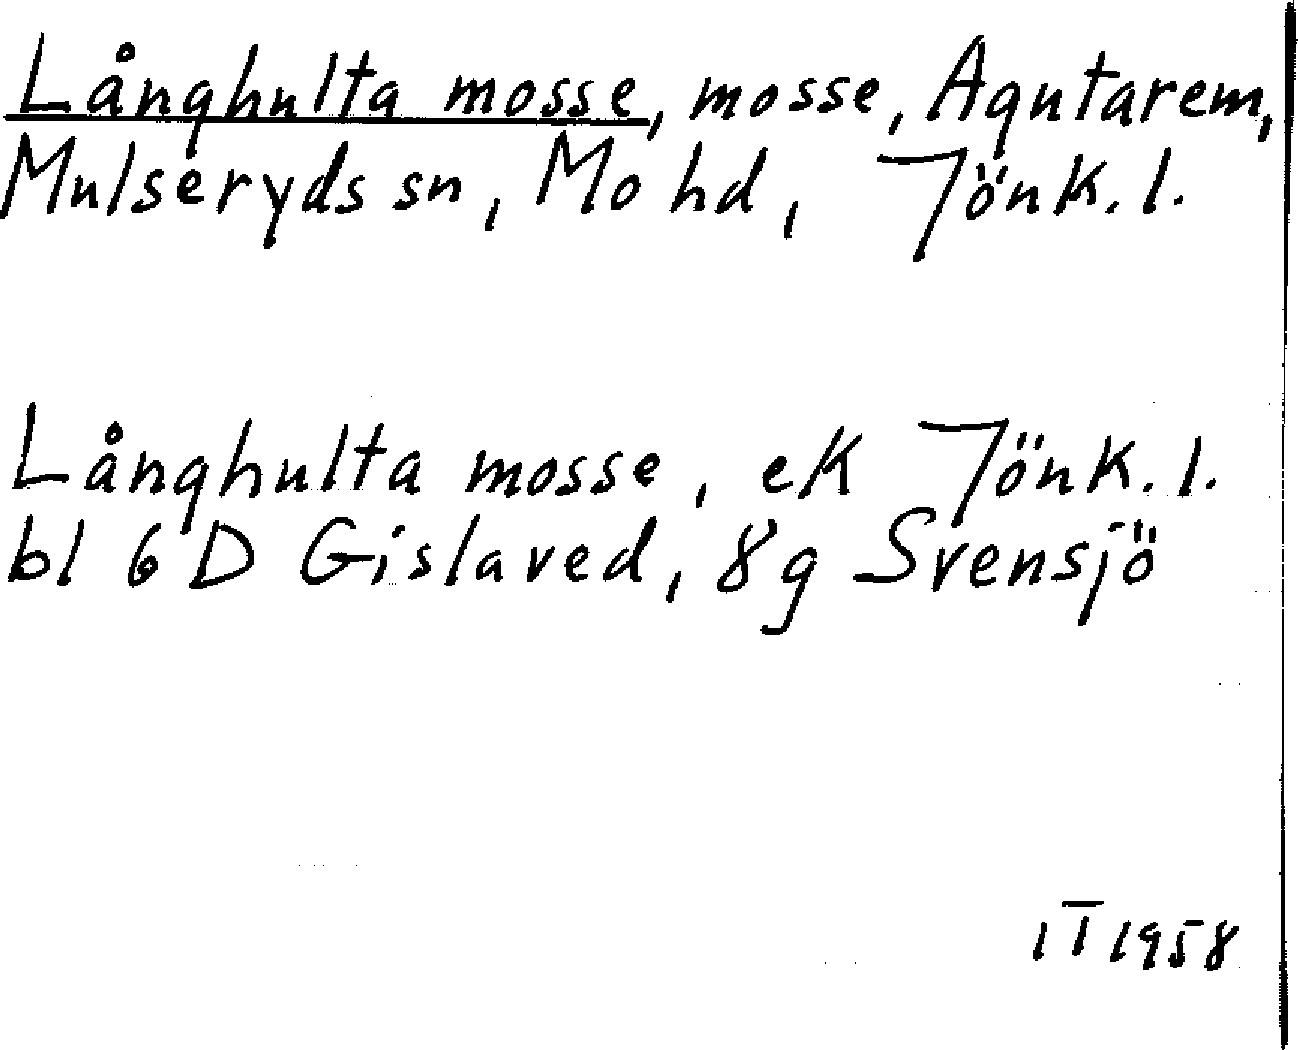 Långhulta mosse, mosse, Aqutarem,
Mulseryds sn, Mo hd, Jönk. l.
Långhulta mosse, ek Jönk. l.
bl 6 D Gislaved, 8g Svensjö
IT 1958